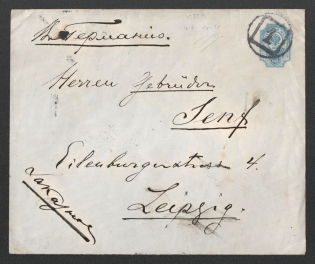 Въ Германію.
Herren Gebrüder
Senf
Eilenburgerstrasse 4.
Leipzig.
Заказное